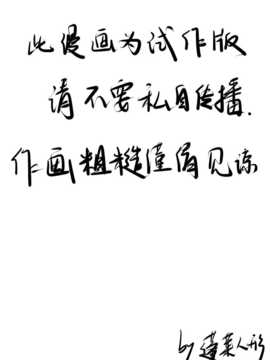 此漫画为试作版
请不要私自传播.
作画粗糙谨慎见谅
by 蓬莱人形